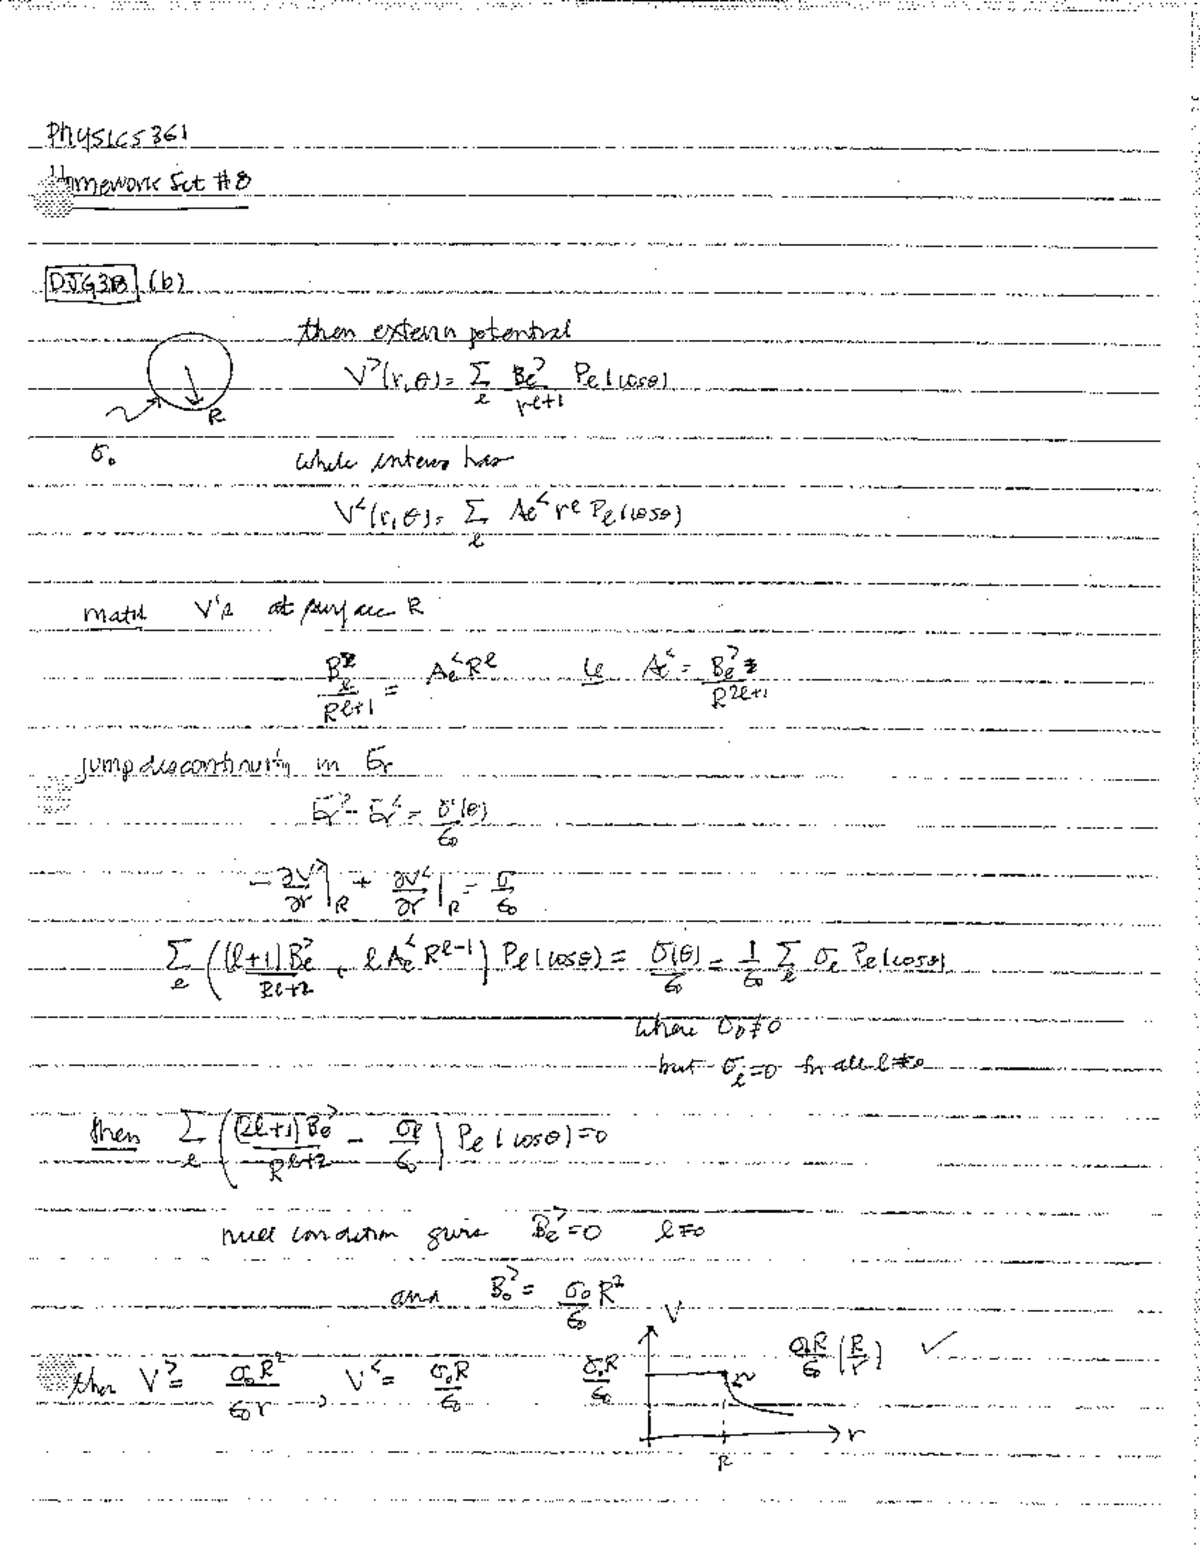 Physics 361
Homework Set #8
DJG3B (b)
then extern potential
V^>(r,θ) = Σ_l B_l^> / r^{l+1} P_l(cosθ)
R
σ_0
while intern has
V^<(r,θ) = Σ_l A_l^< r^l P_l(cosθ)
match V's at surface R
B_l^> / R^{l+1} = A_l^< R^l ie A_l^< = B_l^> / R^{2l+1}
jump discontinuity in E_r
E_r^> - E_r^< = σ(θ)/ε_0
- ∂V^>/∂r |_R + ∂V^</∂r |_R = σ/ε_0
Σ_l ( (l+1) B_l^> / R^{l+2} + l A_l^< R^{l-1} ) P_l(cosθ) = σ(θ)/ε_0 = 1/ε_0 Σ_l σ_l P_l(cosθ)
where σ_0 ≠ 0
but σ_l = 0 for all l ≠ 0
then Σ_l ( (2l+1) B_l^> / R^{l+2} - σ_l/ε_0 ) P_l(cosθ) = 0
null condition gives B_l^> = 0 l ≠ 0
and B_0^> = σ_0/ε_0 R^2
then V^> = σ_0 R^2 / ε_0 r , V^< = σ_0 R / ε_0
V
σ_0 R / ε_0
σ_0 R / ε_0 (R/r) ✓
r
R